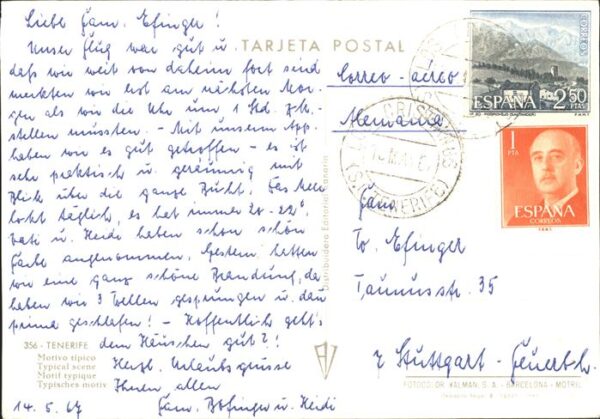 Liebe Fam. Efinger!
Unser Flug war gut u.
daß wir weit von daheim fort sind
merkten wir erst am nächsten Mor-
gen als wir die Uhr um 1 Std. zk.
stellen müssten. - Mit unserem App.
haben wir es gut getroffen - es ist
sehr praktisch u. geräumig mit
Blick über die ganze Bucht. Das Meer
lockt täglich, es hat immer 20-22°.
Vati u. Heidi haben schon schön
Farbe angenommen. Gestern hatten
wir eine ganz schöne Brandung, da
haben wir 3 Wellen gesprungen u. dan
prima geschlafen! - Hoffentlich geht's
dem Häuschen gut?!
Herzl. Urlaubsgrüsse
Ihnen allen
Fam. u. Heidi
14.5.67
356 - TENERIFE
Motivo típico
Typical scene
Motif typique
Typisches motiv
TARJETA POSTAL
Distribuidora Editorial
Correo - aéreo
Alemania
Fam.
W. Efinger
Taunusstr. 35
7 Stuttgart - Feuerb.
FOTOCOLOR VALMAN, S. A. - BARCELONA - MOTRIL
CORREOS
ESPAÑA
2'50
PTAS
1
PTA
ESPAÑA
CORREOS